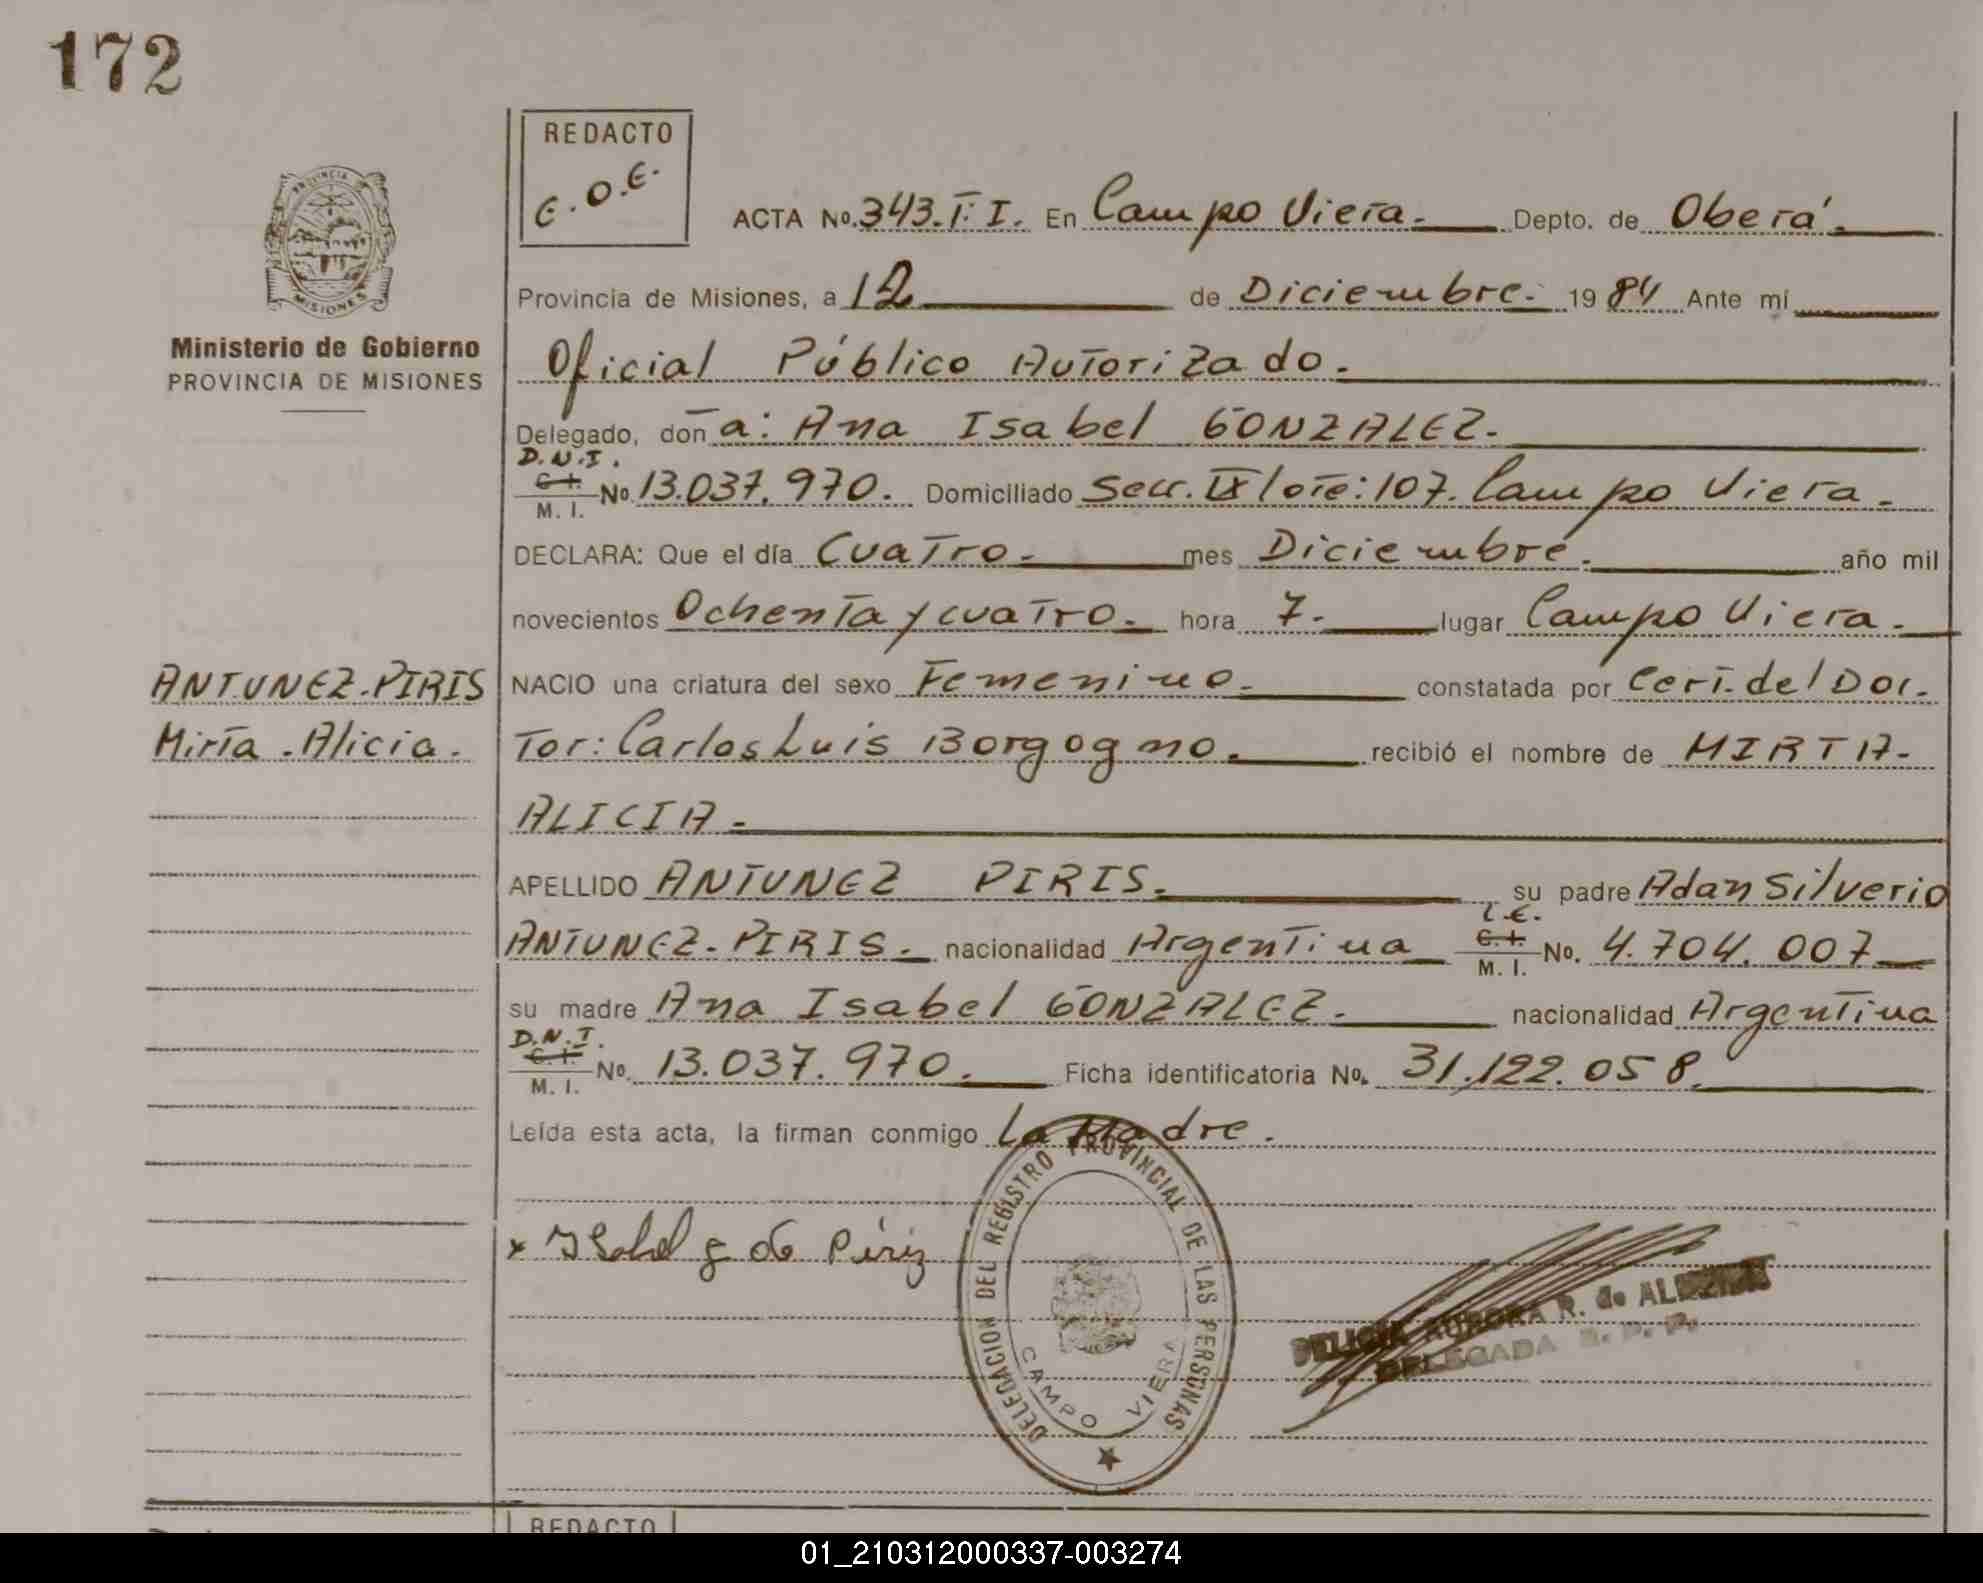 172
REDACTO
E.O.E.
ACTA No. 343. T: I. En Campo Viera. Depto. de Oberá.
PROVINCIA
MISIONES
Ministerio de Gobierno
PROVINCIA DE MISIONES
Provincia de Misiones, a 12 de Diciembre. 19 84 Ante mí
Oficial Público Autorizado.
Delegado, don a: Ana Isabel GONZALEZ.
D.N.I.
C. I.
M. I. No. 13.037.970. Domiciliado Secc. IX lote: 107. Campo Viera.
DECLARA: Que el día Cuatro. mes Diciembre. año mil
novecientos Ochenta y cuatro. hora 7. lugar Campo Viera.
ANTUNEZ.PIRIS
Mirta . Alicia.
NACIO una criatura del sexo Femenino. constatada por Cert. del Doc.
tor: Carlos Luis Borgogno. recibió el nombre de MIRTA.
ALICIA.
APELLIDO ANTUNEZ PIRIS. su padre Adan Silverio
L.E.
ANTUNEZ. PIRIS. nacionalidad Argentina C. I. M. I. No. 4.704.007
su madre Ana Isabel GONZALEZ. nacionalidad Argentina
D.N.I.
C. I.
M. I. No. 13.037.970. Ficha identificatoria No. 31.122.058.
Leída esta acta, la firman conmigo La Madre.
x Isabel g de Píriz
DELEGACION DEL REGISTRO PROVINCIAL DE LAS PERSONAS
CAMPO VIERA
FELICIA AURORA R. de
DELEGADA R. P. P.
REDACTO
01_210312000337-003274